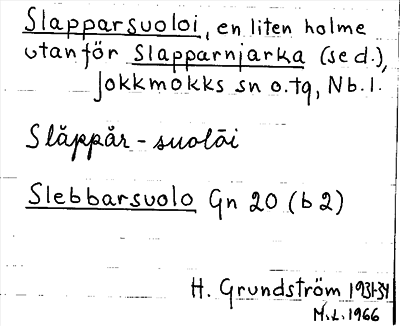 Slapparsuoloi, en liten holme
utanför Slapparnjarka (se d.),
Jokkmokks sn o. tg, Nb. l.
Slăppår-suolāi
Slebbarsuolo Gn 20 (b 2)
H. Grundström 1931-34
M.L. 1966